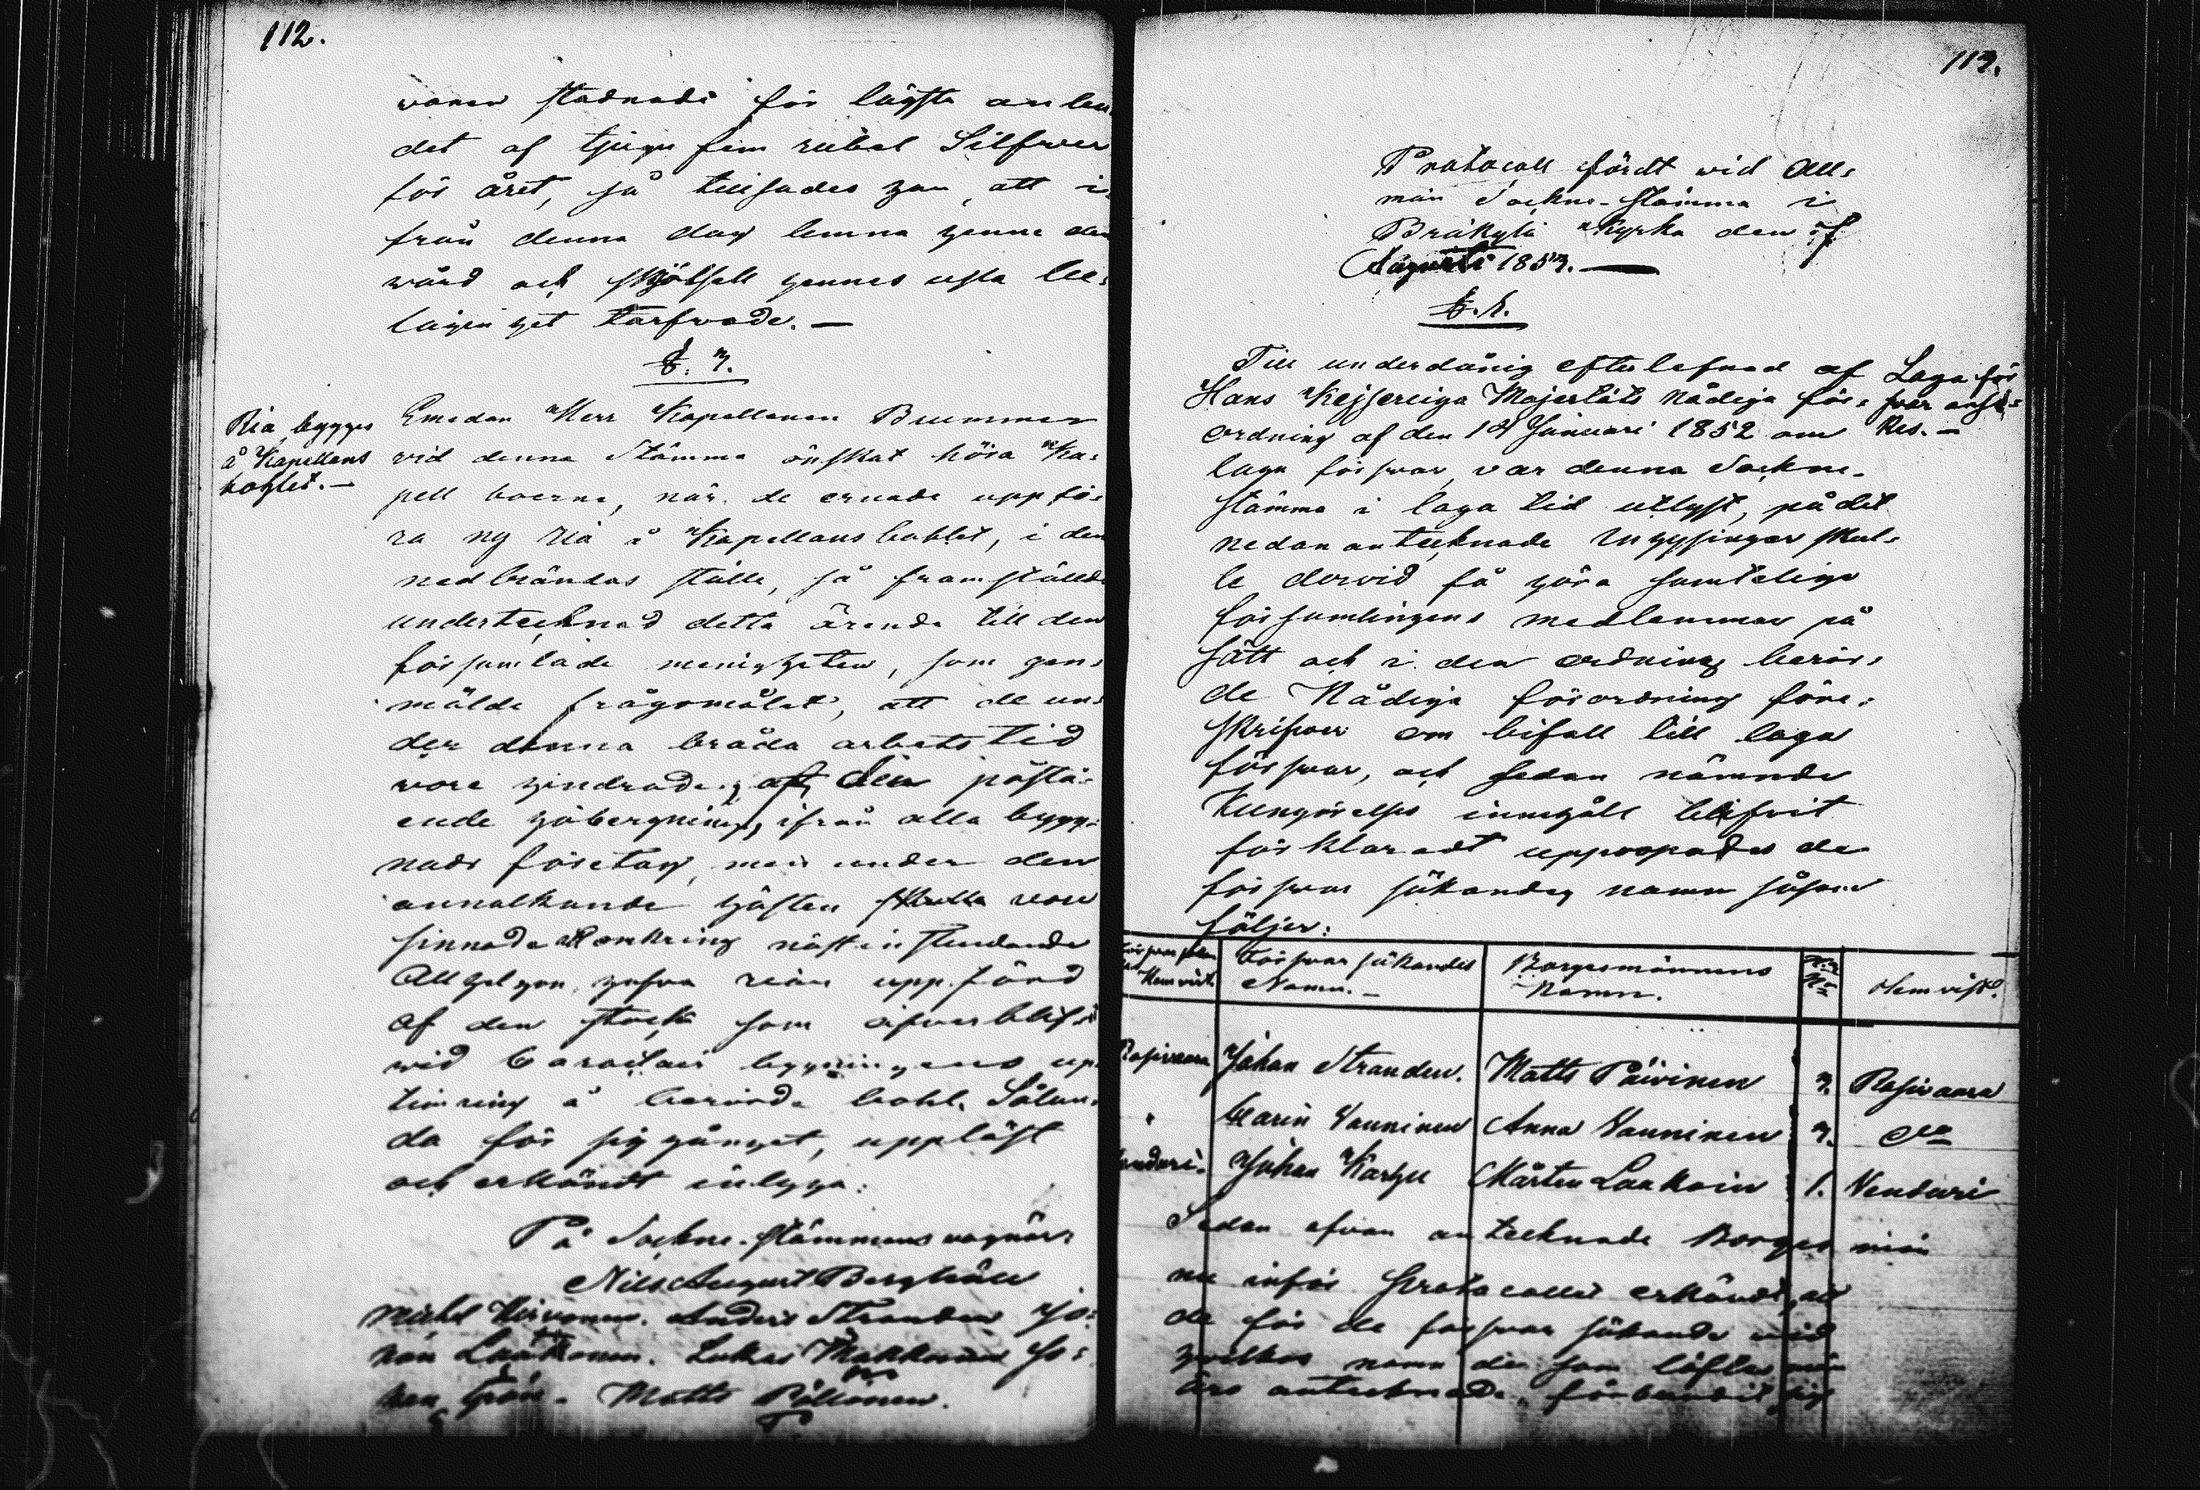 112.
wanen stadnade för lägsta anbu
det af tjugu fem rubel Silfwer
för året, så tillsades han att i-
från denna dag lemna henne den
wård och skjötsell hennes usla be-
lägenhet tarfwade. —
§. 3.
Ria bygges
å Kapellans
bohlet. —
Emedan Herr Kapellanen Brummer
vid denna Stämma önskat höra Ka-
pell boerne, när de ernade uppfö-
ra ny ria å Kapellans bohlet, i den
nedbrändas ställe, så framställde
undertecknad detta ärende till den
församlade menigheten, som gen-
mälde frågomålet, att de un-
der denna bråda arbets tid
wore hindrade af den påstå-
ende höbergning, ifrån alla bygg-
nads företag, men under den
annalkande hösten skulle wara
sinnade omkring nästinstundande
Allhelgon, hafva rian uppförd
af den stock som öfverblifvit
wid Caracters byggningens up-
timring å berörde bohl. Sålun-
da för sig gånget, uppläst
och erkändt intyga:
På Sockne-stämmans vägnar:
Nils August Berghäll
Michel Hirvonen. Anders Stranden Jo-
han Laakonen. Lukas Makkonen Jo-
han Matts Pöllönen.
113.
Protocoll fördt wid All-
män Sockne-Stämma i
Bräkylä Kyrka den 7
Augusti 1853. —
§. 1.
Till underdånig efterlefnad af
Hans Kejserliga Majestäts Nådiga för-
ordning af den 19 Januari 1852 om
laga försvar, var denna Sockne-
stämma i laga tid utlyst, på det
nedan antecknade Inhysingar skul-
le dervid få höra samtelige
församlingens medlemmar på
sätt och i den ordning berör-
de Nådiga förordning före-
skrifver om bifall till laga
försvar, och sedan nämnde
Kungörelses innehåll blifvit
förklaradt uppropades de
försvar sökandes namn såsom
följer:
Laga för
svar ansö-
kes. —
Försvar sökan
des Hemvist
Försvar sökandes
Namn. —
Borgesmännens
Namn.
No
Hemvist.
Rasivaara Johan Stranden. Matts Päivinen 3. Rasivaara
" Carin Vanninen Anna Vanninen 3. Do
Vendori. Johan Karhu Mårten Laakoin 1. Venduri
Sedan ofvan antecknade Borges män
nu inför Protocollet erkändt, att
de för de försvar sökande wid
hvilkas namn de som löftes män
äro antecknade, förbundit sig